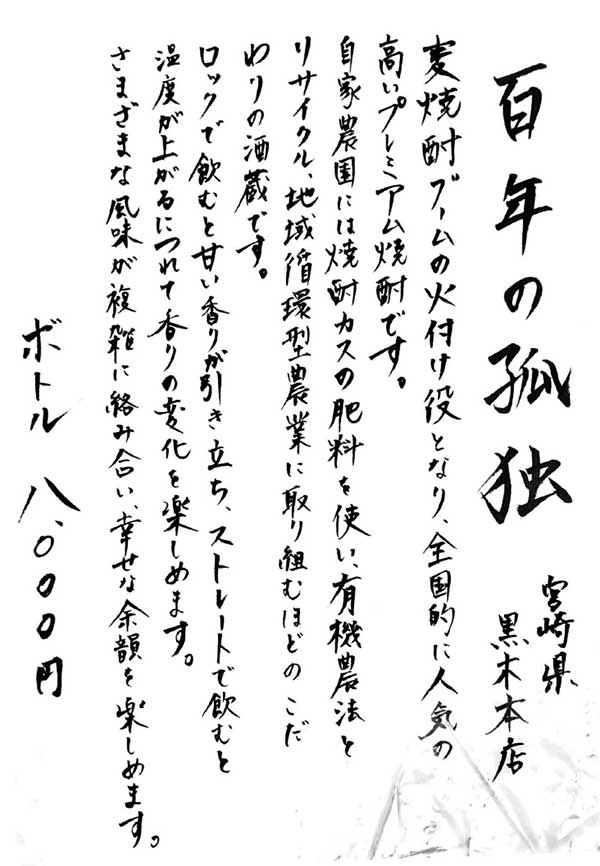 百年の孤独
宮崎県
黒木本店
麦焼酎ブームの火付け役となり、全国的に人気の
高いプレミアム焼酎です。
自家農園には焼酎カスの肥料を使い、有機農法と
リサイクル、地域循環型農業に取り組むほどのこだ
わりの酒蔵です。
ロックで飲むと甘い香りが引き立ち、ストレートで飲むと
温度が上がるにつれて香りの変化を楽しめます。
さまざまな風味が複雑に絡み合い、幸せな余韻を楽しめます。
ボトル 八、〇〇〇円